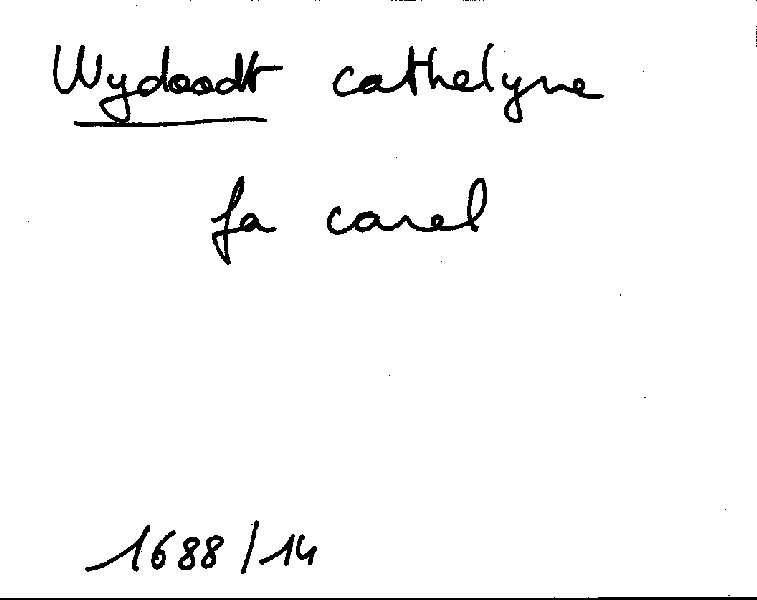 Wydoodt cathelyne
fa carel
1688/14